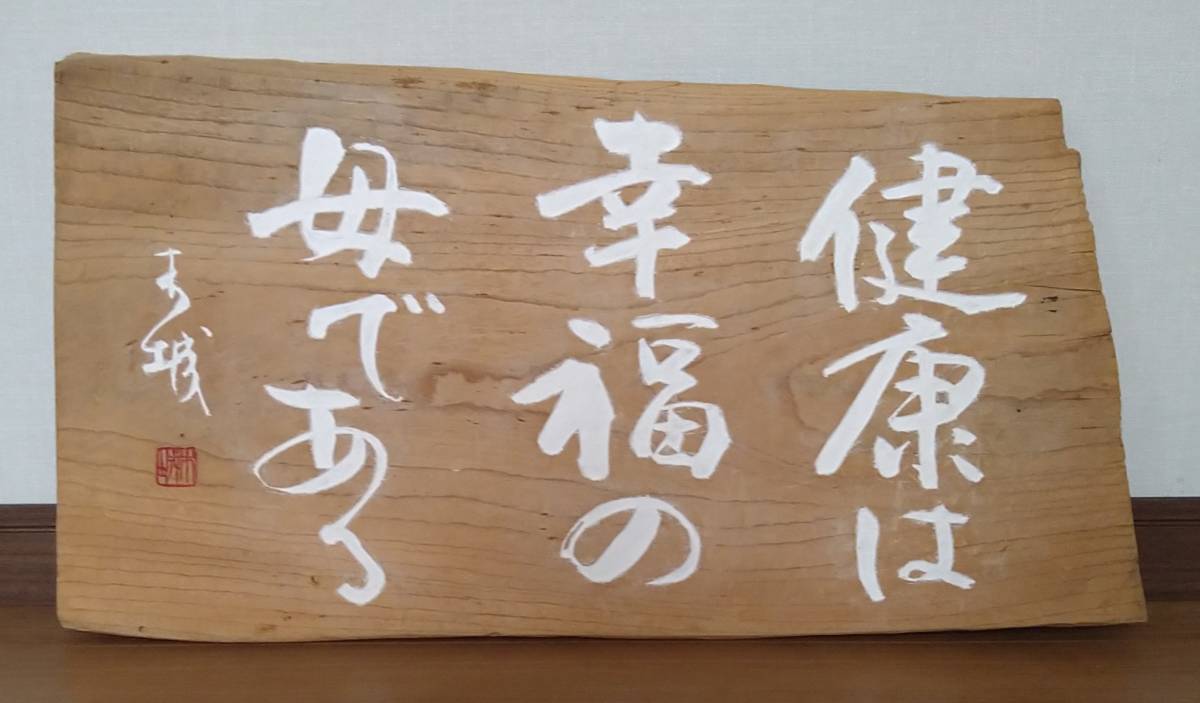 健康は
幸福の
母である